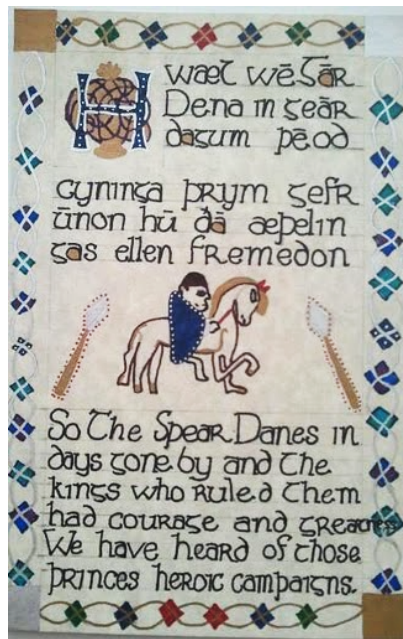 Hwaet wē Gār
Dena in geār
dagum þēod
cyninga þrym gefr
ūnon hū ðā aeþelin
gas ellen fremedon
So The Spear Danes in
days gone by and the
kings who ruled them
had courage and greatness
We have heard of those
princes heroic campaigns.